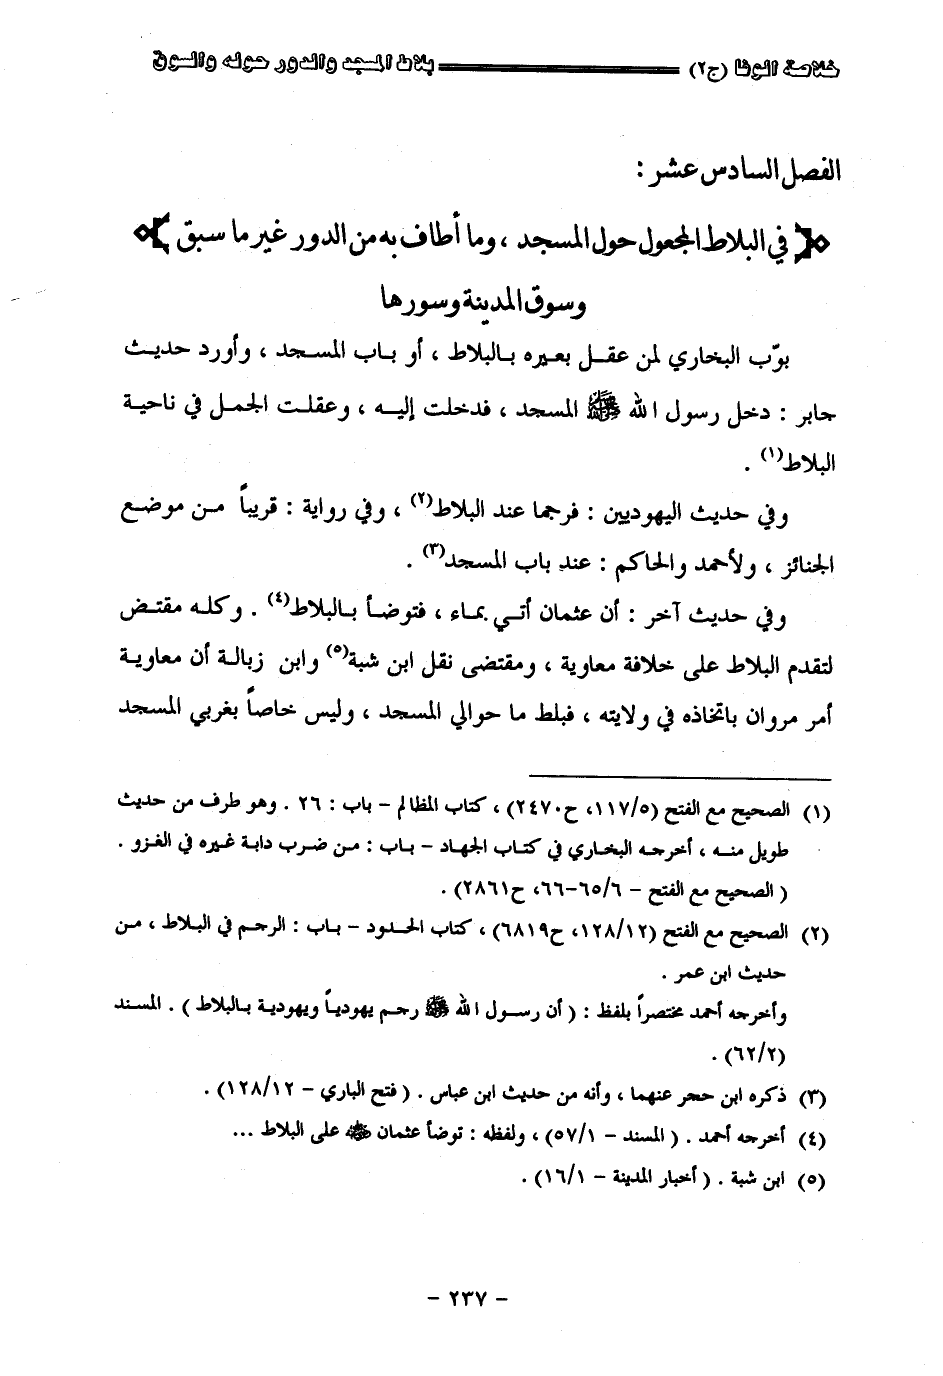 خلاصة الوفا (ج٢) بلاط المسجد والدور حوله والسوق
الفصل السادس عشر :
﴿ في البلاط المجعول حول المسجد ، وما أطاف به من الدور غير ما سبق ﴾
وسوق المدينة وسورها
بوّب البخاري لمن عقل بعيره بالبلاط ، أو باب المسجد ، وأورد حديث
جابر : دخل رسول الله ﷺ المسجد ، فدخلت إليه ، وعقلت الجمل في ناحية
البلاط(١) .
وفي حديث اليهوديين : فرجما عند البلاط(٢) ، وفي رواية : قريباً من موضع
الجنائز ، ولأحمد والحاكم : عند باب المسجد(٣) .
وفي حديث آخر : أن عثمان أتي بماء ، فتوضأ بالبلاط(٤) . وكله مقتض
لتقدم البلاط على خلافة معاوية ، ومقتضى نقل ابن شبة(٥) وابن زبالة أن معاوية
أمر مروان باتخاذه في ولايته ، فبلط ما حوالي المسجد ، وليس خاصاً بغربي المسجد
(١) الصحيح مع الفتح (١١٧/٥، ح٢٤٧٠) ، كتاب المظالم – باب : ٢٦ . وهو طرف من حديث
طويل منه ، أخرجه البخاري في كتاب الجهاد – باب : من ضرب دابة غيره في الغزو .
( الصحيح مع الفتح – ٦٥/٦–٦٦، ح٢٨٦١) .
(٢) الصحيح مع الفتح (١٢٨/١٢، ح٦٨١٩) ، كتاب الحدود – باب : الرجم في البلاط ، من
حديث ابن عمر .
وأخرجه أحمد مختصراً بلفظ : ( أن رسول الله ﷺ رجم يهودياً ويهودية بالبلاط ) . المسند
(٦٢/٢) .
(٣) ذكره ابن حجر عنهما ، وأنه من حديث ابن عباس . ( فتح الباري – ١٢٨/١٢) .
(٤) أخرجه أحمد . ( المسند – ٥٧/١) ، ولفظه : توضأ عثمان رضي الله عنه على البلاط ...
(٥) ابن شبة . ( أخبار المدينة – ١٦/١) .
– ٢٣٧ –